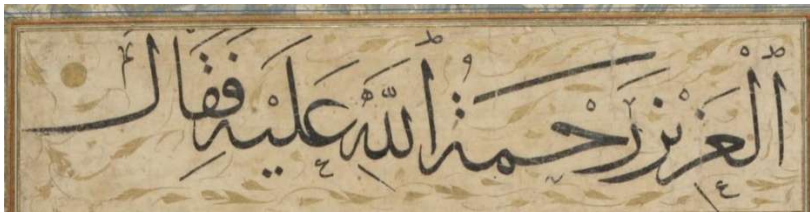 اَلْعَزِيْزِ رَحْمَةُ اَللّٰهِ عَلَيْهِ فَقَالَ